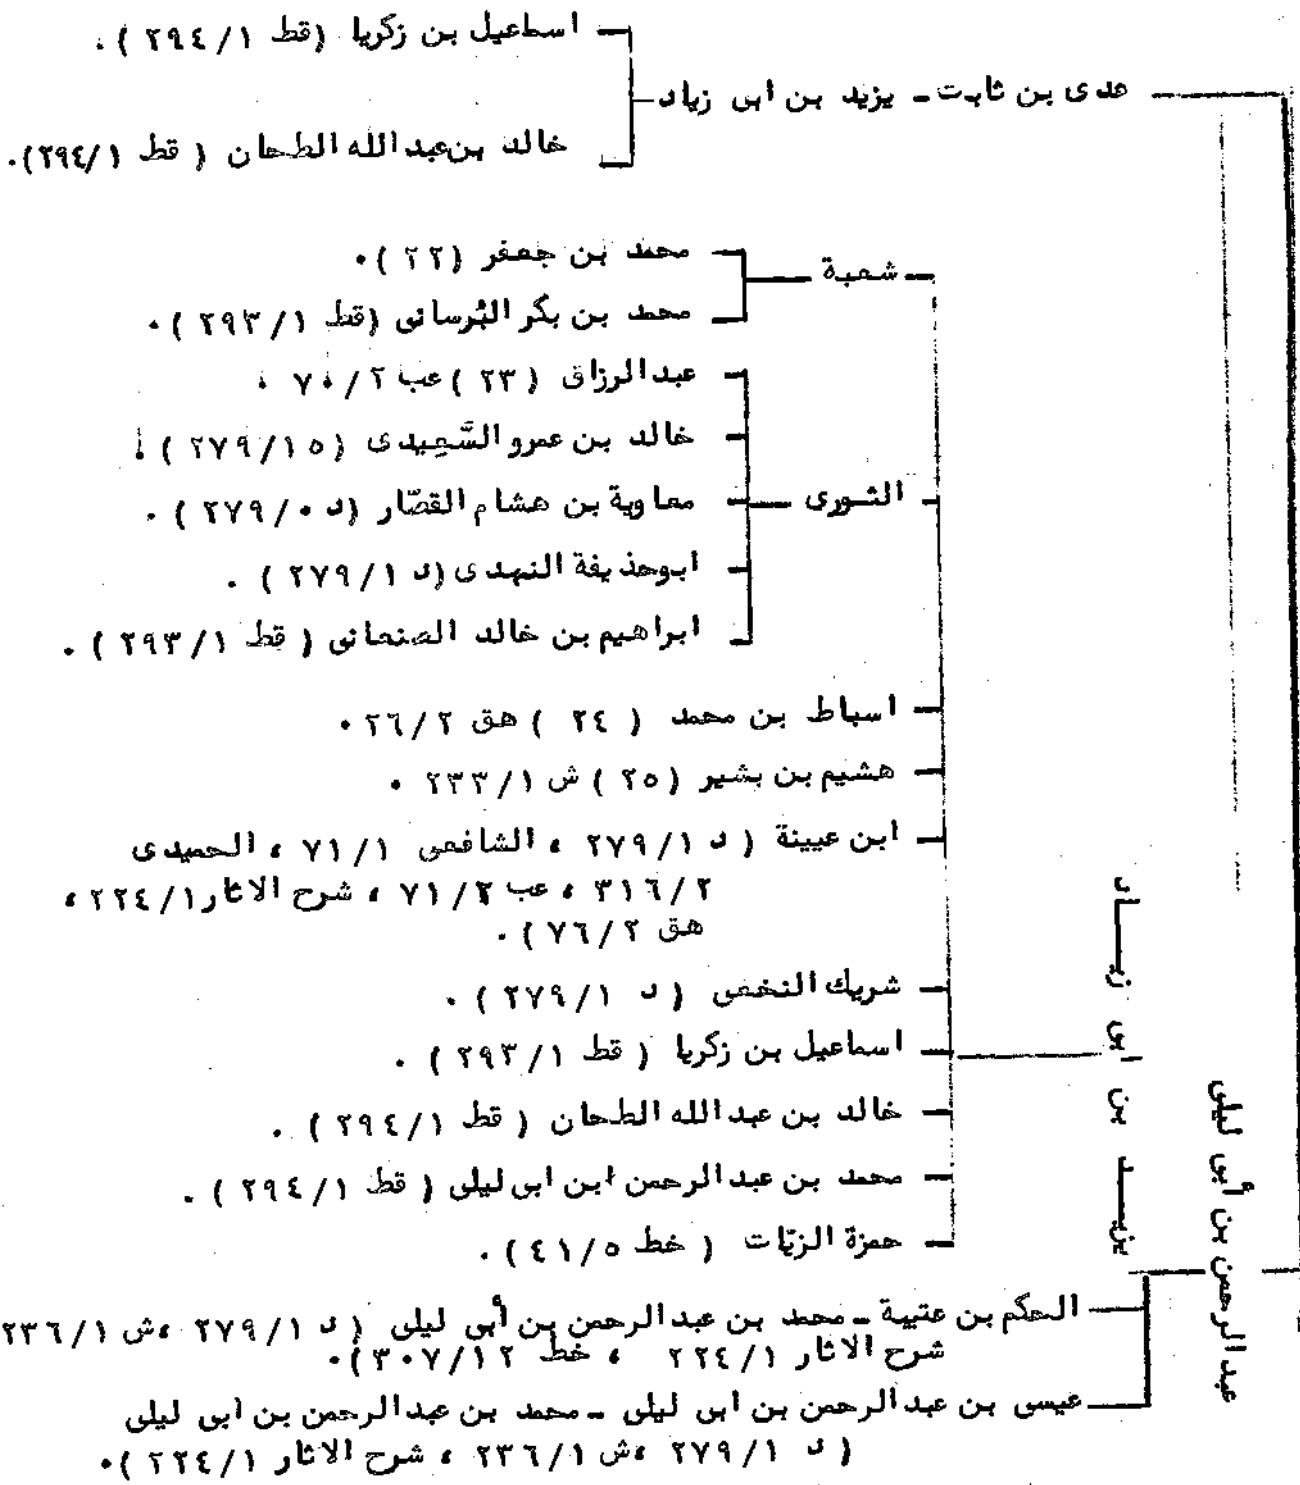 اسماعيل بن زكريا (قط ١/ ٢٩٤ ) .
عدى بن ثابت ـ يزيد بن ابى زياد
خالد بن عبد الله الطحان ( قط ١/ ٢٩٤).
شعبة
محمد بن جعفر (٢٢ ).
محمد بن بكر البُرسانى (قط ١/ ٢٩٣ ).
عبد الرزاق ( ٢٣ ) عب ٢/ ٧٠ .
خالد بن عمرو السَّعِيدى (١٥/ ٢٧٩ ) .
الثورى
معاوية بن هشام القصّار (د ٠/ ٢٧٩ ) .
ابوحذيفة النهدى (د ١/ ٢٧٩ ) .
ابراهيم بن خالد الصنعانى ( قط ١/ ٢٩٣ ) .
اسباط بن محمد ( ٢٤ ) هق ٢/ ٢٦ .
هشيم بن بشير ( ٢٥ ) ش ١/ ٢٣٣ .
ابن عيينة ( د ١/ ٢٧٩ ، الشافعى ١/ ٧١ ، الحميدى
٢/ ٣١٦ ، عب ٢/ ٧١ ، شرح الاثار ١/ ٢٢٤ ،
هق ٢/ ٧٦ ) .
شريك النخعى ( د ١/ ٢٧٩ ) .
اسماعيل بن زكريا ( قط ١/ ٢٩٣ ) .
خالد بن عبد الله الطحان ( قط ١/ ٢٩٤ ) .
محمد بن عبد الرحمن ابن ابى ليلى ( قط ١/ ٢٩٤ ) .
حمزة الزيّات ( خط ٥/ ٤١ ) .
يزيـــد بن ابى زيـــاد
عبد الرحمن بن أبى ليلى
الحكم بن عتيبة ـ محمد بن عبد الرحمن بن أبى ليلى ( د ١/ ٢٧٩ ، ش ١/ ٢٣٦
شرح الاثار ١/ ٢٢٤ ، خط ١٢/ ٣٠٧ ).
عيسى بن عبد الرحمن بن ابى ليلى ـ محمد بن عبد الرحمن بن ابى ليلى
( د ١/ ٢٧٩ ، ش ١/ ٢٣٦ ، شرح الاثار ١/ ٢٢٤ ).